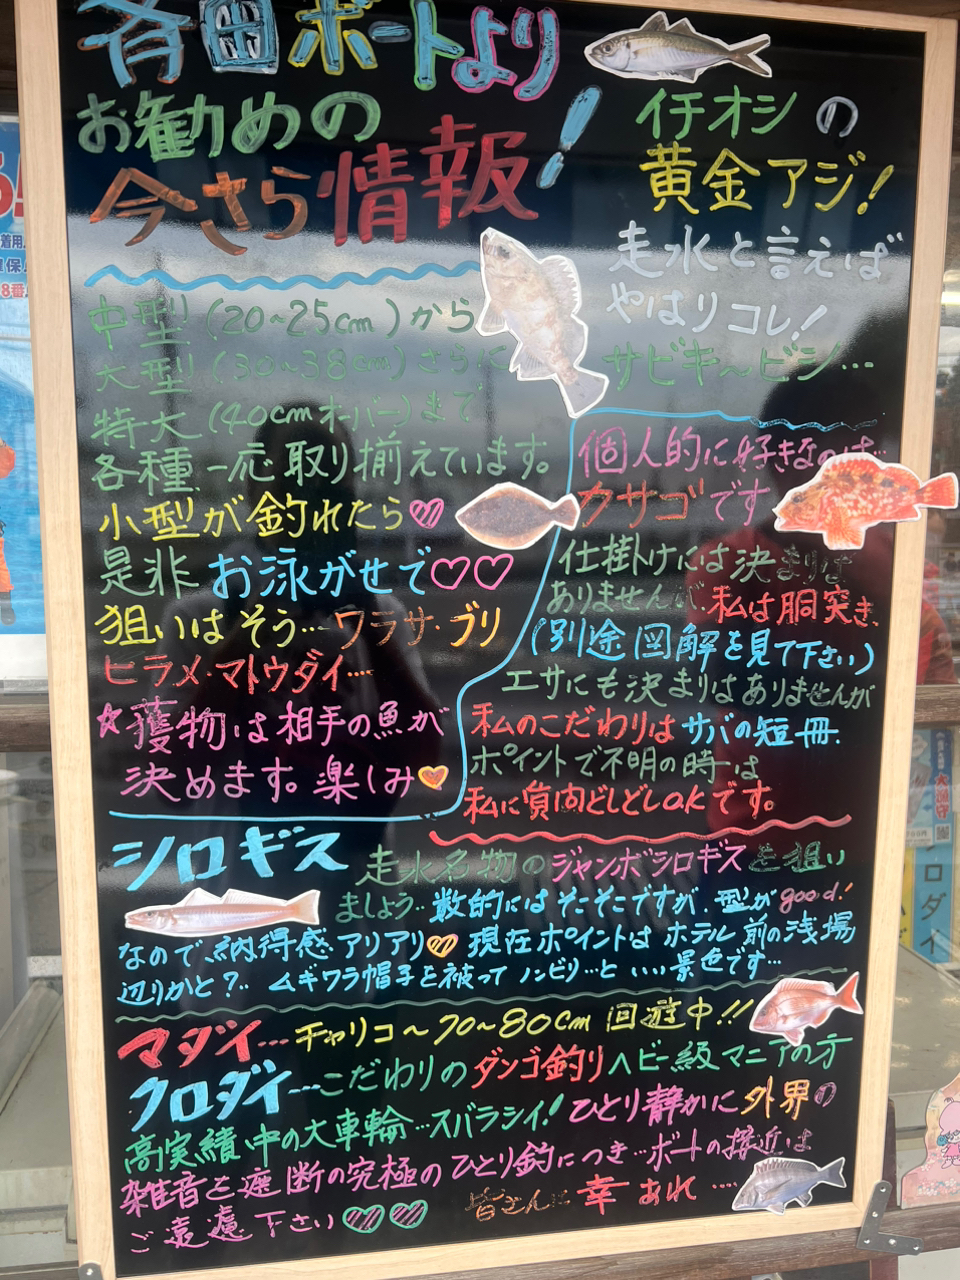 斉田ボートより
お勧めの
今さら情報！
イチオシの
黄金アジ！
走水と言えば
やはりコレ！
サビキ〜ビシ…
中型(20~25cm)から
大型(30~38cm)さらに
特大(40cmオーバー)まで
各種一応取り揃えています。
小型が釣れたら♡
是非お泳がせで♡♡
狙いはそう…ワラサ・ブリ
ヒラメ・マトウダイ…
☆獲物は相手の魚が
決めます。楽しみ♡
個人的に好きなのは…
カサゴです
仕掛けには決まりは
ありませんが、私は胴突き、
(別途図解を見て下さい)
エサにも決まりはありませんが
私のこだわりはサバの短冊.
ポイントで不明の時は
私に質問どしどしOKです。
シロギス 走水名物のジャンボシロギスを狙い
ましょう‥数的にはそこそこですが、型がgood!
なので、納得感アリアリ♡ 現在ポイントはホテル前の浅場
辺りかと?‥ムギワラ帽子を被ってノンビリ…といい景色です…
マダイ…チャリコ〜70~80cm 回遊中!!
クロダイ…こだわりのダンゴ釣りヘビー級マニアの方
高実績中の大車輪…スバラシイ！ひとり静かに外界の
雑音を遮断の究極のひとり釣につき…ボートの接近は
ご遠慮下さい♡♡
皆さんに幸あれ…
着用
保
8番
ロダイ